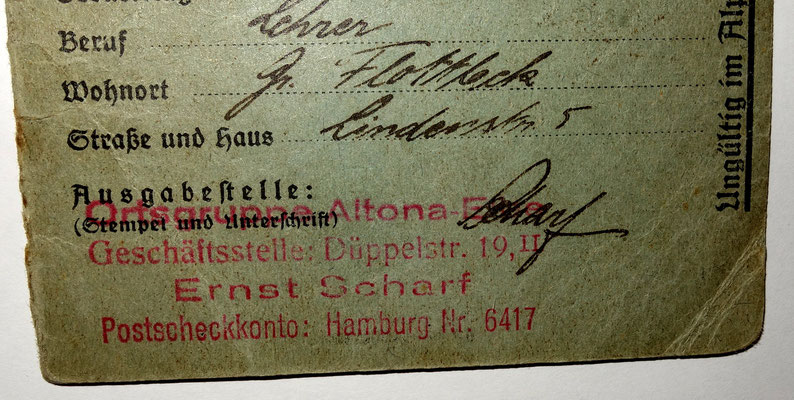 Beruf Lehrer
Wohnort Gr. Flottbeck
Straße und Haus Lindenstr. 5
Ausgabestelle:
Ortsgruppe Altona-
(Stempel und Unterschrift) Scharf
Geschäftsstelle: Düppelstr. 19, II
Ernst Scharf
Postscheckkonto: Hamburg Nr. 6417
Ungültig im